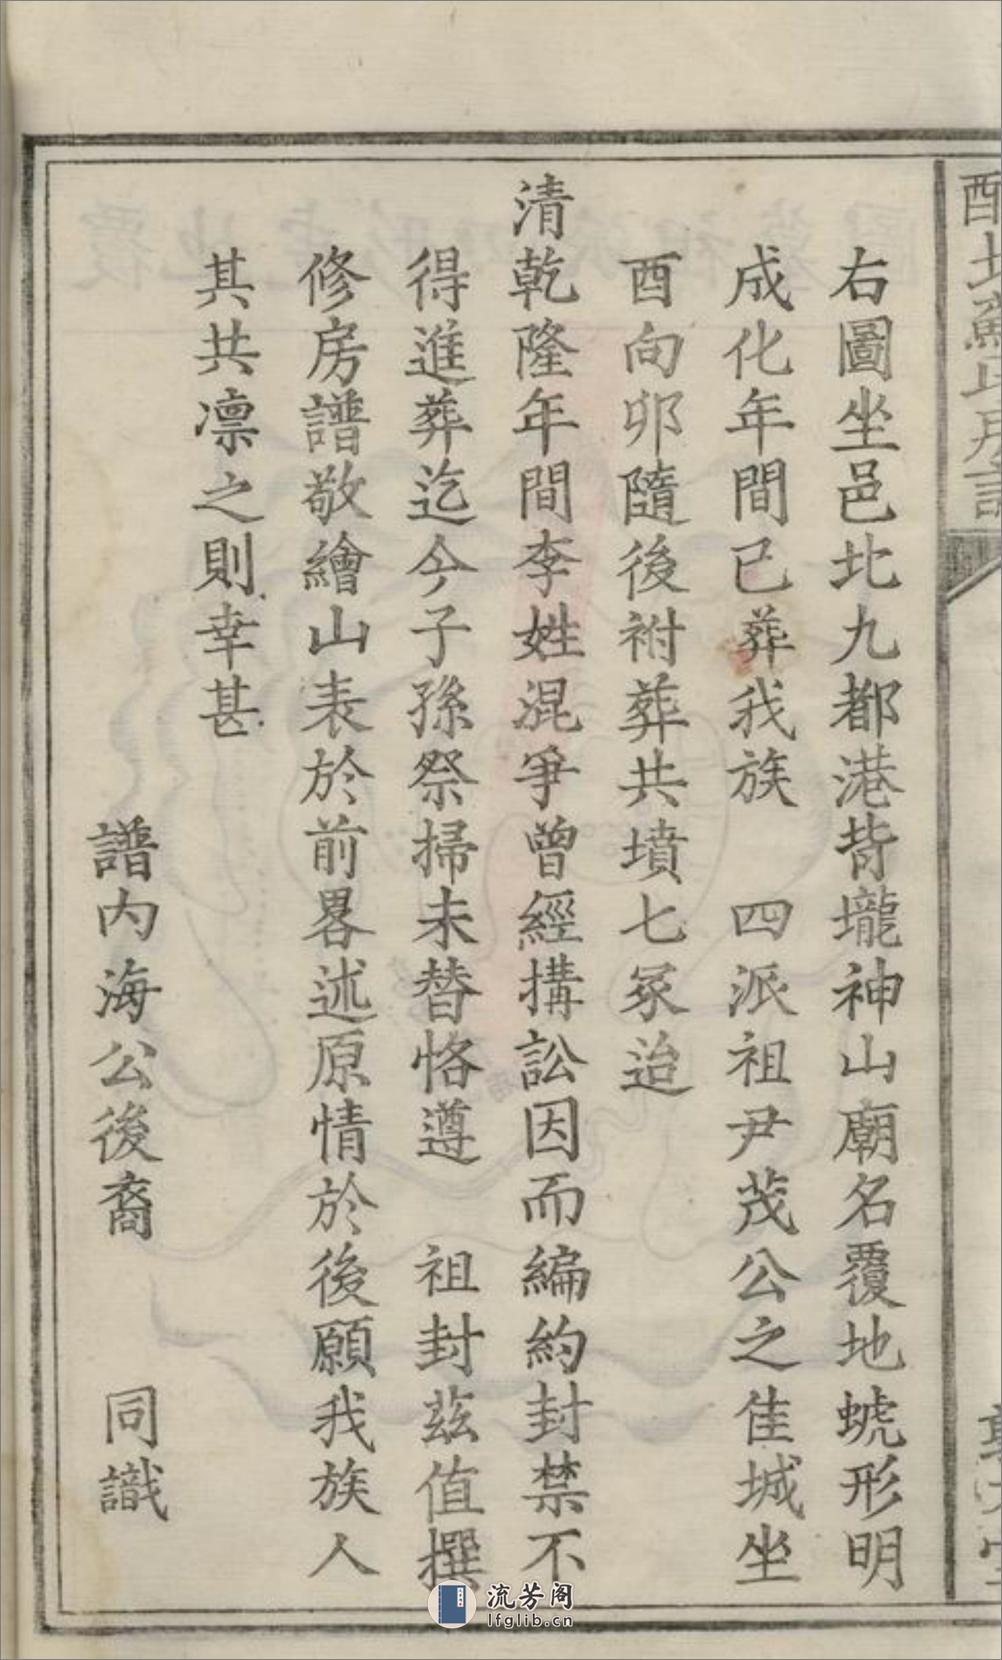 右圖坐邑北九都港背壠神山廟名覆地蜈形明
成化年間已葬我族　四派祖尹茂公之佳城坐
酉向卯隨後祔葬共墳七冢迨
清乾隆年間李姓混爭曾經搆訟因而編約封禁不
得進葬迄今子孫祭掃未替恪遵　祖封茲值撰
修房譜敬繪山表於前畧述原情於後願我族人
其共凛之則幸甚
譜內海公後裔　同識
流芳阁
lfglib.cn